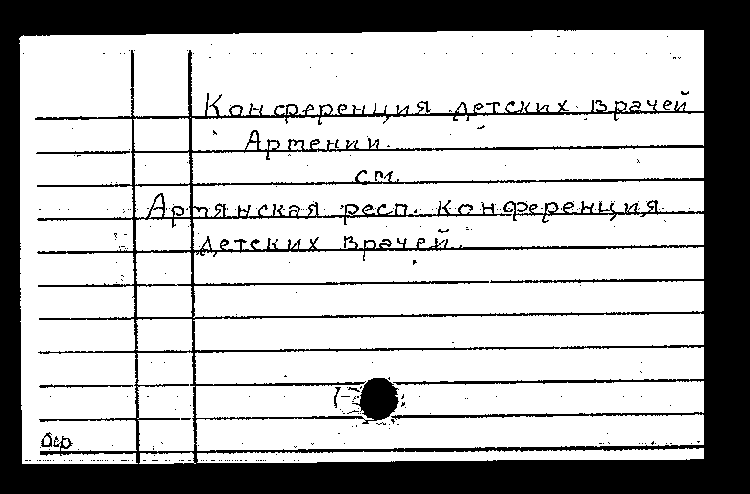 Конференция детских врачей
Артении.
см.
Артянская респ. конференция
детских врачей.